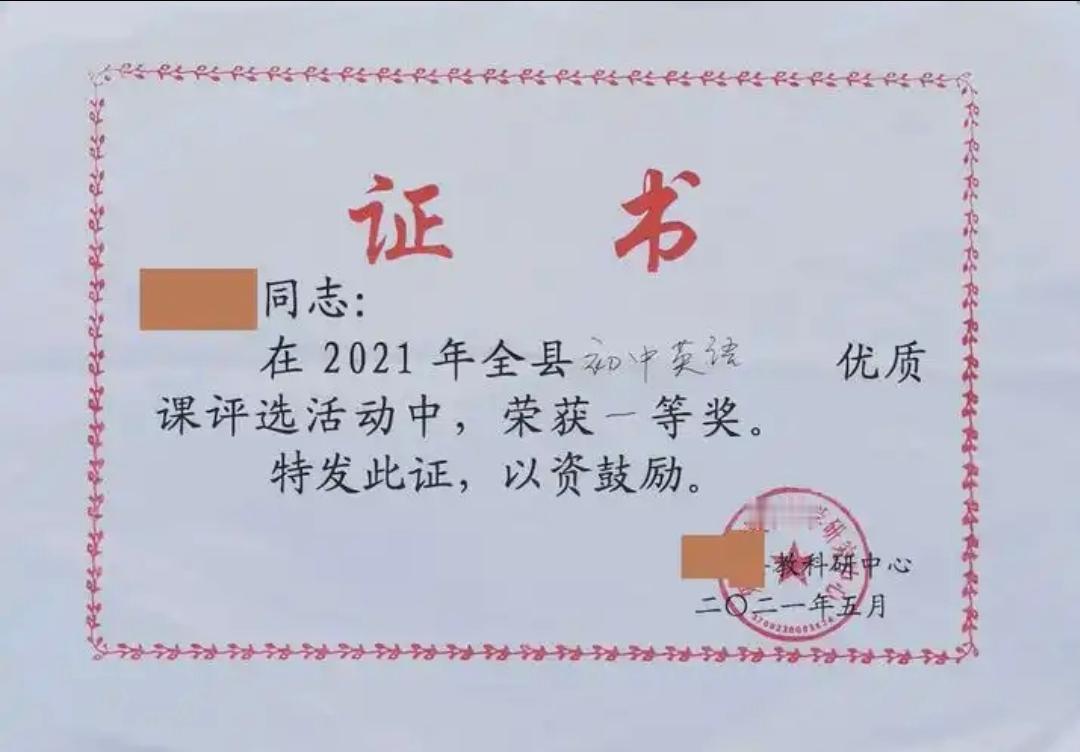 证 书
同志：
在2021年全县初中英语 优质
课评选活动中，荣获一等奖。
特发此证，以资鼓励。
教科研中心
二〇二一年五月